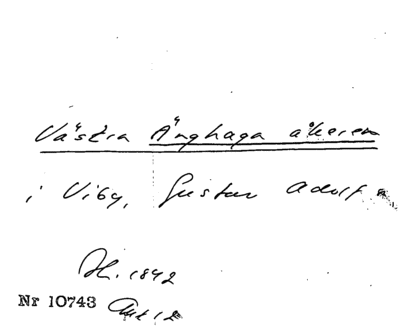 Västra Änghaga åkeren
i Viby, Gustav Adolf s.
H. 1842
Nr 10743 Akt 12